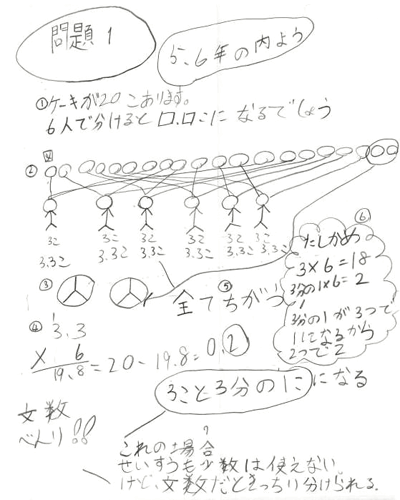 問題1
5、6年の内よう
①ケーキが20こあります。
6人で分けると口.口こになるでしょう
②
3こ 3こ 3こ 3こ 3こ 3こ
3.3こ 3.3こ 3.3こ 3.3こ 3.3こ 3.3こ
③
⑤
全てちがう
⑥
たしかめ
3×6=18
3分の1×6=2
3分の1が3つで
1になるから
2つで2
④
3.3
× 6
19.8 = 20 - 19.8 = 0.2
3こと3分の1こになる
文数
べんり!!
これの場合
せいすうも少数は使えない
けど、文数だときっちり分けられる。